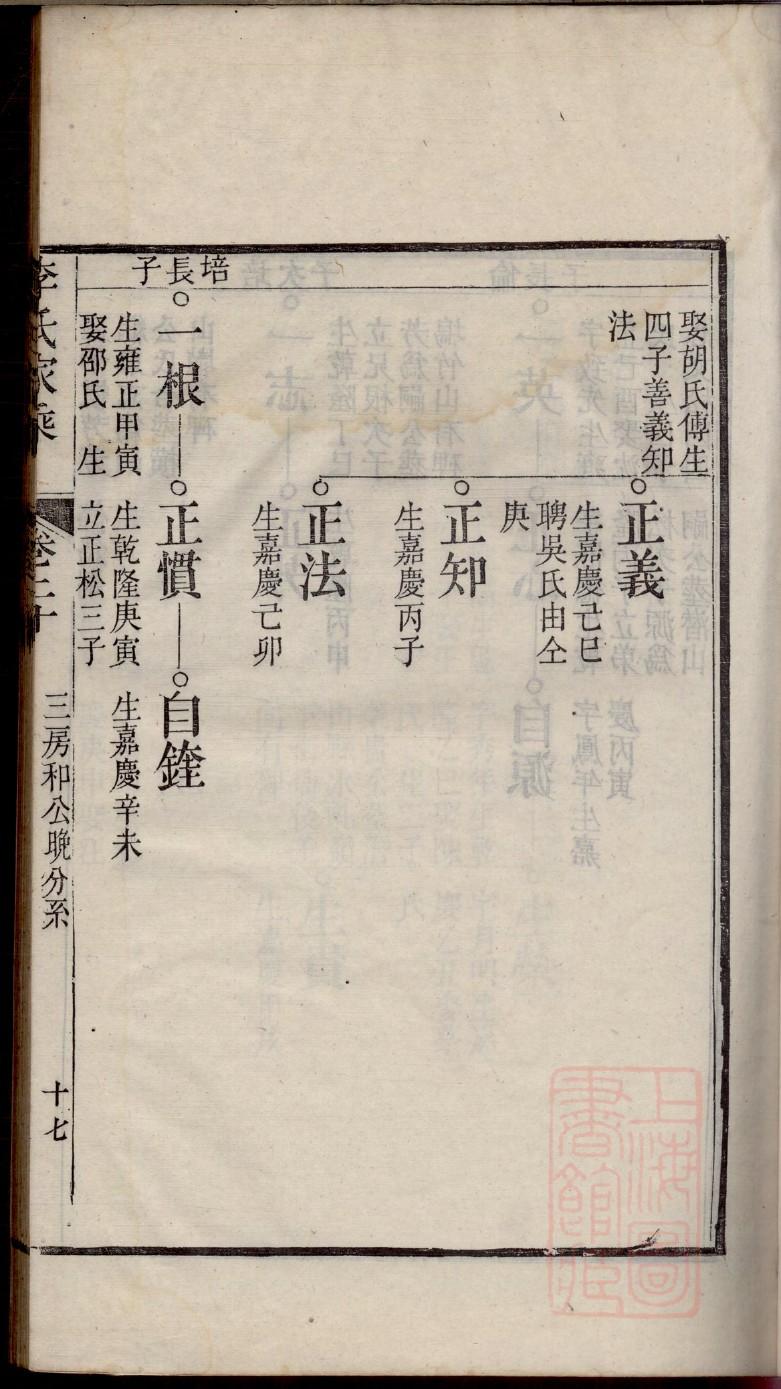 娶胡氏傳生
四子善義知
法
正義
生嘉慶己巳
聘吳氏由仝
庚
正知
生嘉慶丙子
正法
生嘉慶己卯
培長子
一根
生雍正甲寅
娶邵氏 生
正慣
生乾隆庚寅
立正松三子
自鏗
生嘉慶辛未
李氏家乘
卷二十
三房和公晚分系
十七
上海圖
書館藏